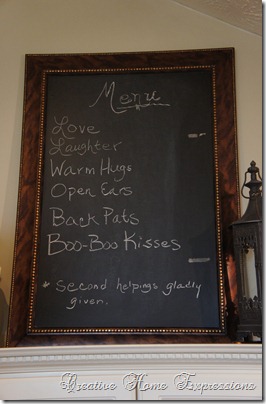 Menu
Love
Laughter
Warm Hugs
Open Ears
Back Pats
Boo-Boo Kisses
* Second helpings gladly
given.
Creative Home Expressions